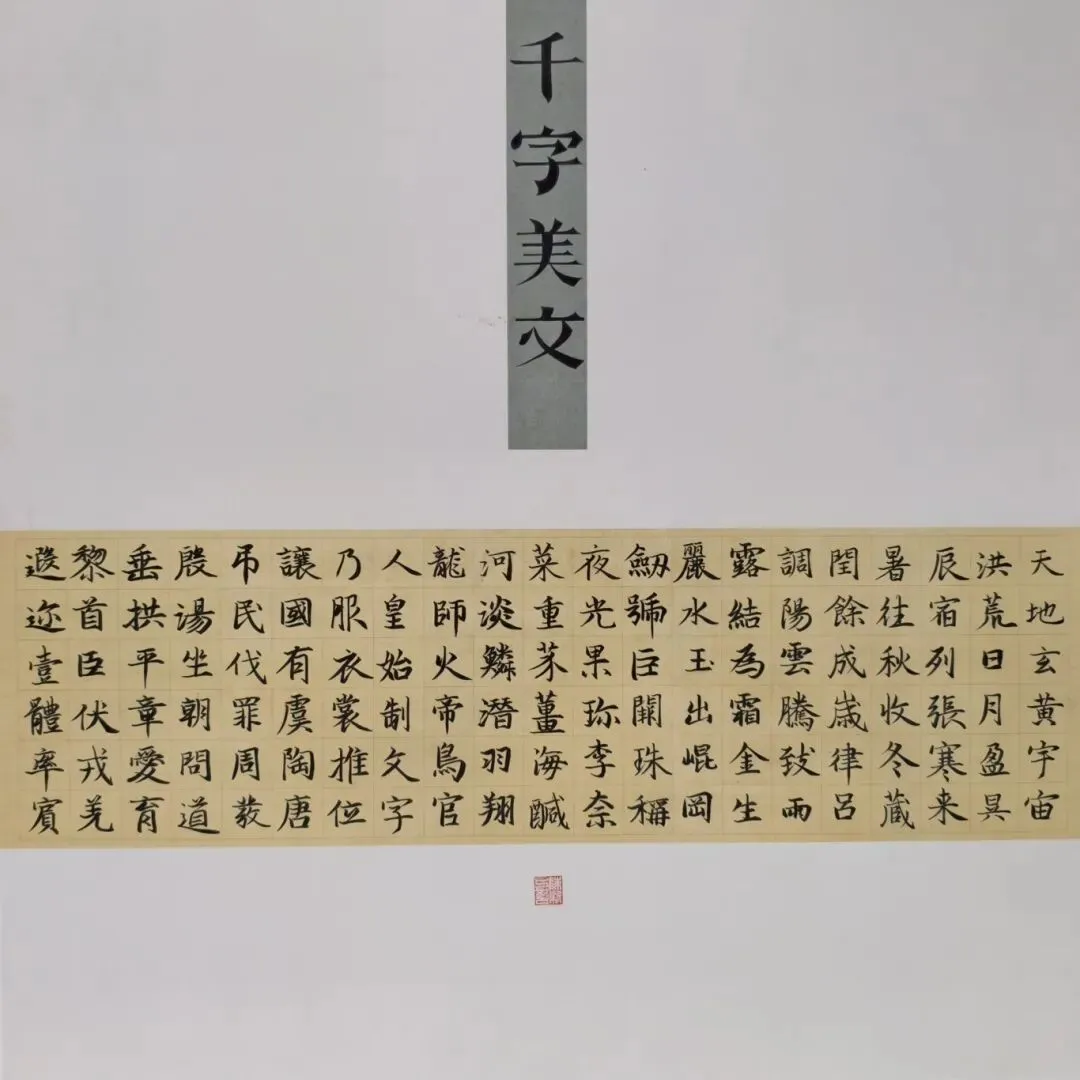 千字美文
天地玄黄宇宙
洪荒日月盈昃
辰宿列張寒来
暑往秋收冬蔵
閏餘成歲律吕
調陽雲騰致雨
露結為霜金生
麗水玉出崐岡
劒號巨闕珠稱
夜光果珎李柰
菜重芥薑海醎
河淡鱗潛羽翔
龍師火帝鳥官
人皇始制文字
乃服衣裳推位
讓國有虞陶唐
吊民伐罪周發
殷湯坐朝問道
垂拱平章愛育
黎首臣伏戎羌
遐迩壹體率賓